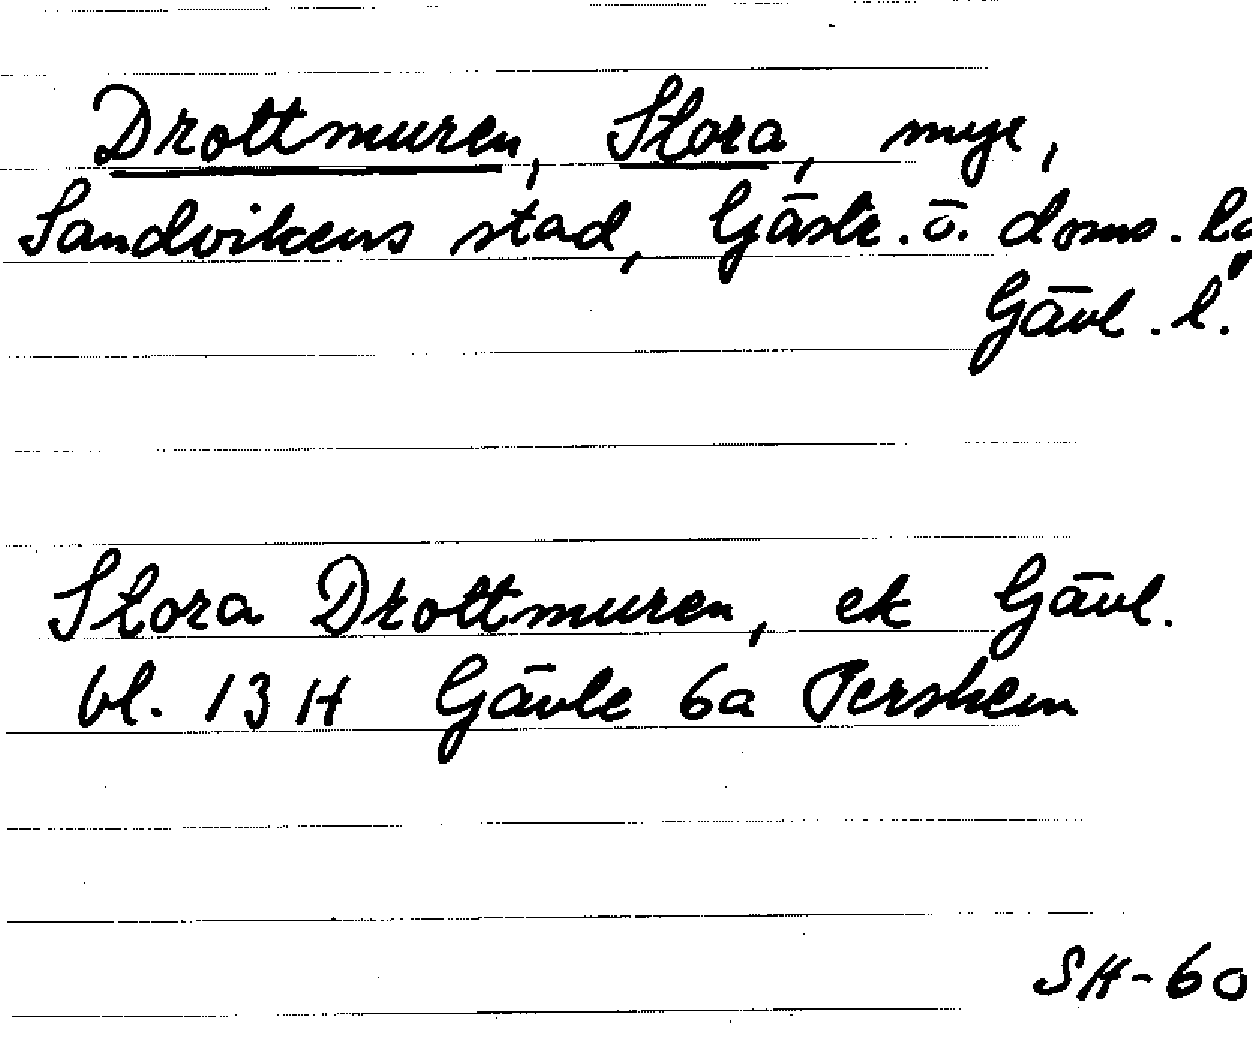 Drottmuren, Stora, myr,
Sandvikens stad, Gästr. ö. doms.
Gävl. l.
Stora Drottmuren, ek Gävl.
bl. 13 H Gävle 6a Pershem
SH-60